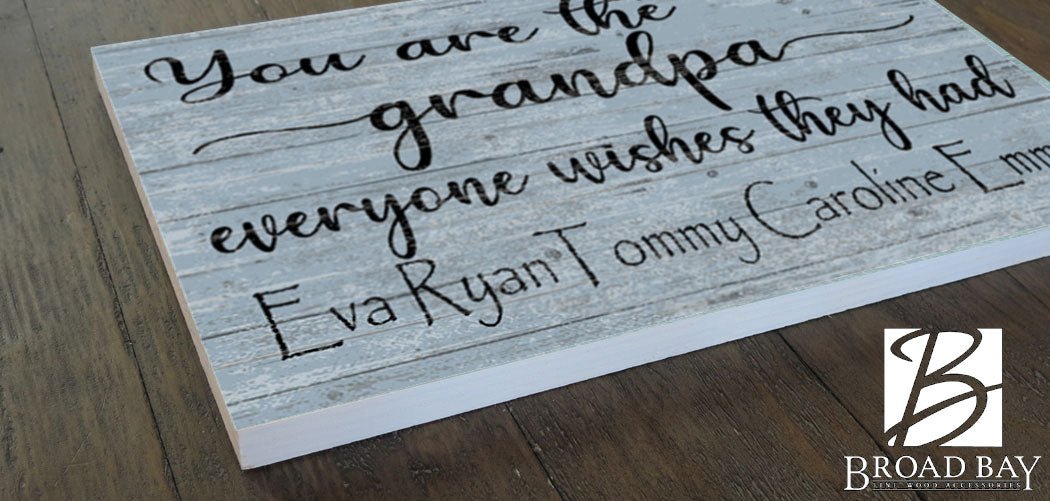 You are the
grandpa
everyone wishes they had
Eva Ryan Tommy Caroline Emm
B
BROAD BAY
FINE WOOD ACCESSORIES